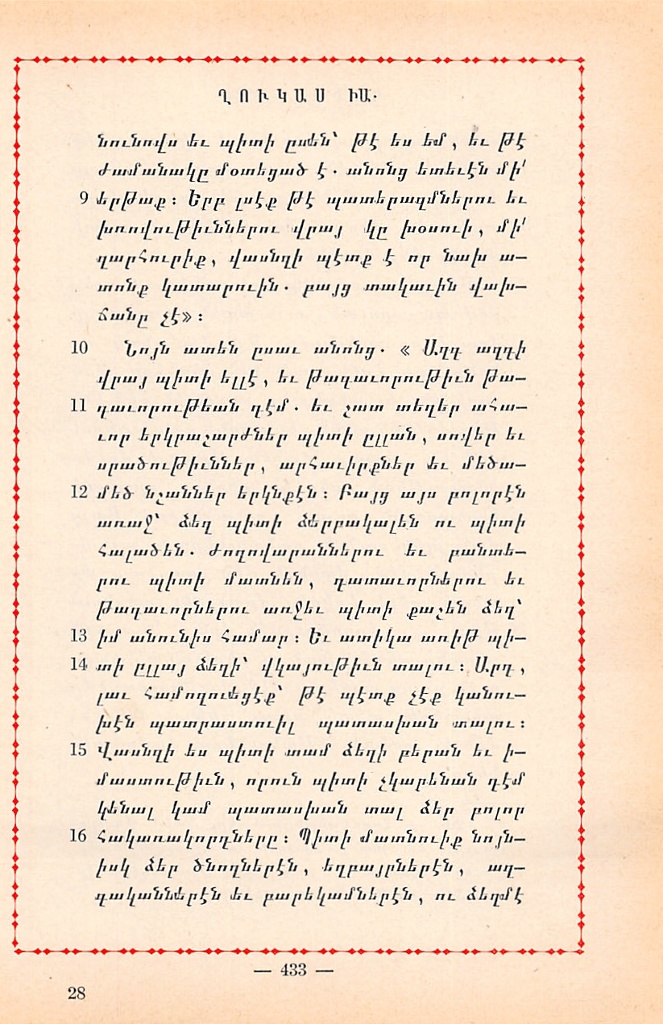 ՂՈՒԿԱՍ ԻԱ.
նունովս եւ պիտի ըսեն՝ թէ ես եմ, եւ թէ
ժամանակը մօտեցած է. անոնց ետեւէն մի՛
9 երթաք: Երբ լսէք թէ պատերազմներու եւ
խռովութիւններու վրայ կը խօսուի, մի՛
զարհուրիք, վասնզի պէտք է որ նախ ա—
տոնք կատարուին. բայց տակաւին վախ—
ճանը չէ»:
10 Նոյն ատեն ըսաւ անոնց. « Ազգ ազգի
վրայ պիտի ելլէ, եւ թագաւորութիւն թա—
11 գաւորութեան դէմ. եւ շատ տեղեր ահա—
ւոր երկրաշարժներ պիտի ըլլան, սովեր եւ
սրածութիւններ, արհաւիրքներ եւ մեծա—
12 մեծ նշաններ երկնքէն: Բայց այս բոլորէն
առաջ՝ ձեզ պիտի ձերբակալեն ու պիտի
հալածեն. ժողովարաններու եւ բանտե—
րու պիտի մատնեն, դատաւորներու եւ
թագաւորներու առջեւ պիտի քաշեն ձեզ՝
13 իմ անունիս համար: Եւ ատիկա առիթ պի—
14 տի ըլլայ ձեզի՝ վկայութիւն տալու: Արդ,
լաւ համոզուեցէք՝ թէ պէտք չէք կանու—
խէն պատրաստուիլ պատասխան տալու:
15 Վասնզի ես պիտի տամ ձեզի բերան եւ ի—
մաստութիւն, որուն պիտի չկարենան դէմ
կենալ կամ պատասխան տալ ձեր բոլոր
16 հակառակորդները: Պիտի մատնուիք նոյն—
իսկ ձեր ծնողներէն, եղբայրներէն, ազ—
գականներէն եւ բարեկամներէն, ու ձեզմէ
— 433 —
28